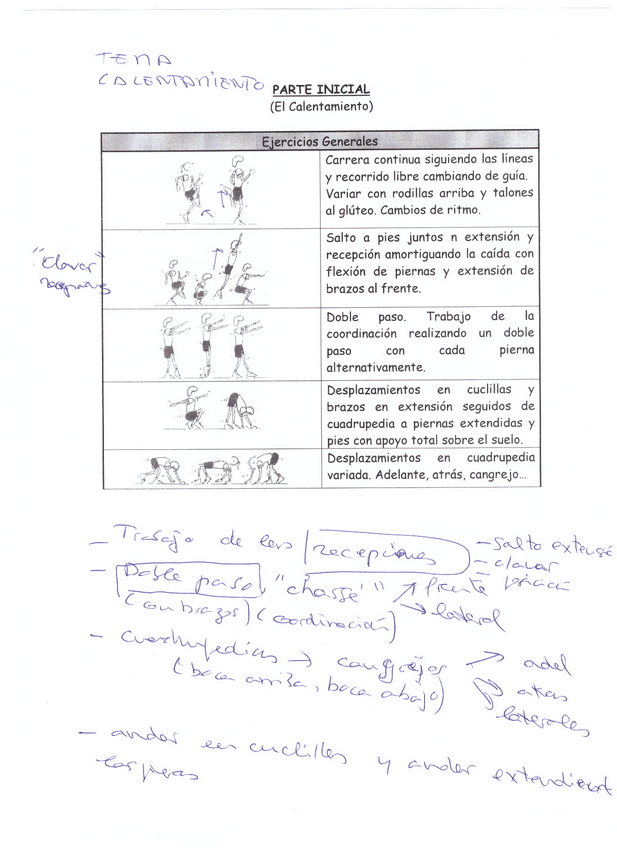 TEMA
CALENTAMIENTO
PARTE INICIAL
(El Calentamiento)
Ejercicios Generales
Carrera continua siguiendo las líneas
y recorrido libre cambiando de guía.
Variar con rodillas arriba y talones
al glúteo. Cambios de ritmo.
"clavar"
Salto a pies juntos n extensión y
recepción amortiguando la caída con
flexión de piernas y extensión de
brazos al frente.
Doble paso. Trabajo de la
coordinación realizando un doble
paso con cada pierna
alternativamente.
Desplazamientos en cuclillas y
brazos en extensión seguidos de
cuadrupedia a piernas extendidas y
pies con apoyo total sobre el suelo.
Desplazamientos en cuadrupedia
variada. Adelante, atrás, cangrejo...
- Trabajo de las recepciones - salto extensé
- clavar
- Doble paso, "chassé" frente
(con brazos) (coordinación) lateral
- Cuadrupedias → cangrejos adel
(boca arriba, boca abajo) atras
laterales
- andar en cuclillas y andar
las piernas